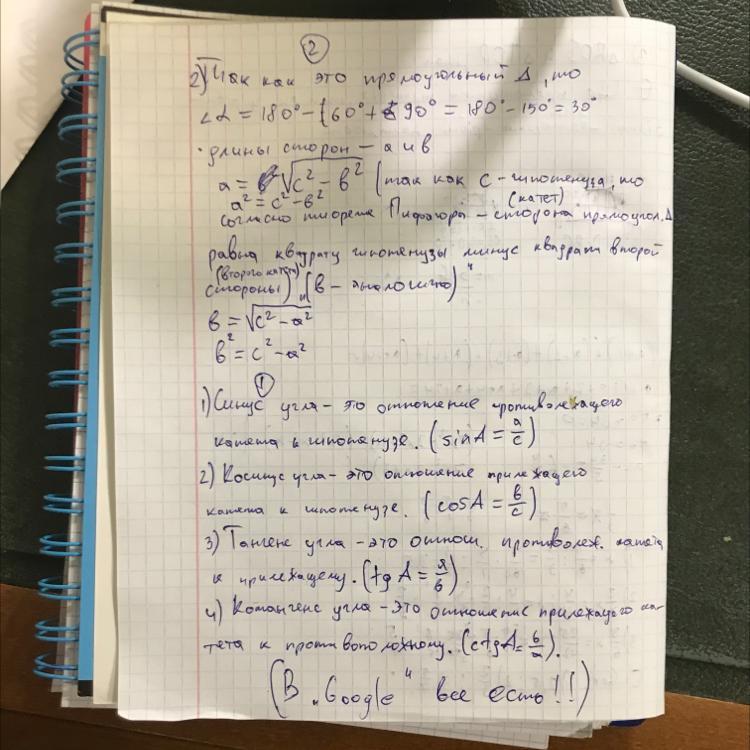 2
2) Так как это прямоугольный Δ, то
∠α = 180° - (60° + 90° = 180° - 150° = 30°
· длины сторон - a и в
a = √c² - в² (так как c - гипотенуза, то
a² = c² - в²
(катет)
согласно теореме Пифагора - сторона прямоугол. Δ
равна квадрату гипотенузы минус квадрат второй
(второго катета)
стороны) „(в - аналогично)“
в = √c² - a²
в² = c² - a²
1
1) Синус угла - это отношение противолежащего
катета к гипотенузе. (sinA = a/c)
2) Косинус угла - это отношение прилежащего
катета к гипотенузе. (cosA = в/c)
3) Тангенс угла - это отнош. противолеж. катета
к прилежащему. (tgA = a/в)
4) Котангенс угла - это отношение прилежащего ка-
тета к противоположному. (ctgA = в/a).
(В „Google“ все есть!!)